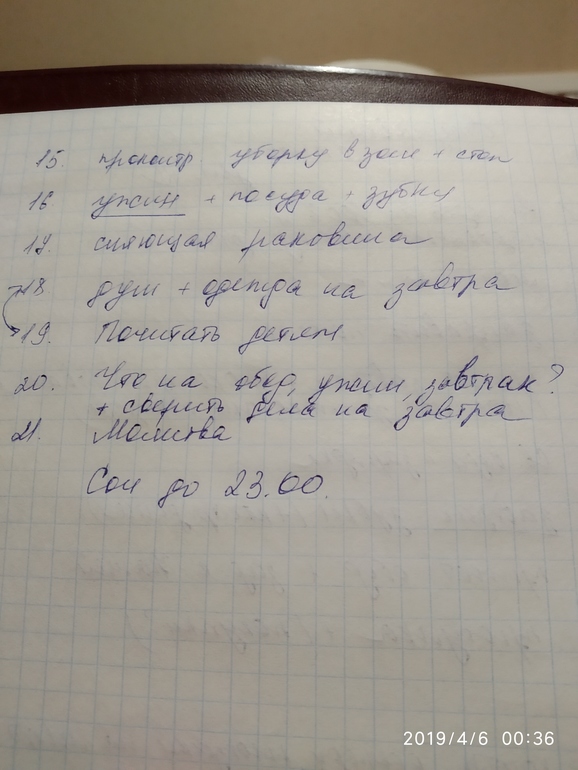 15. просмотр. уборку в зоне + стол
16 ужин + посуда + зубки
17. сияющая раковина
18. душ + одежда на завтра
19. Почитать детям
20. Что на обед, ужин, завтрак?
+ сверить дела на завтра
21. Молитва
Сон до 23.00.
2019/4/6 00:36